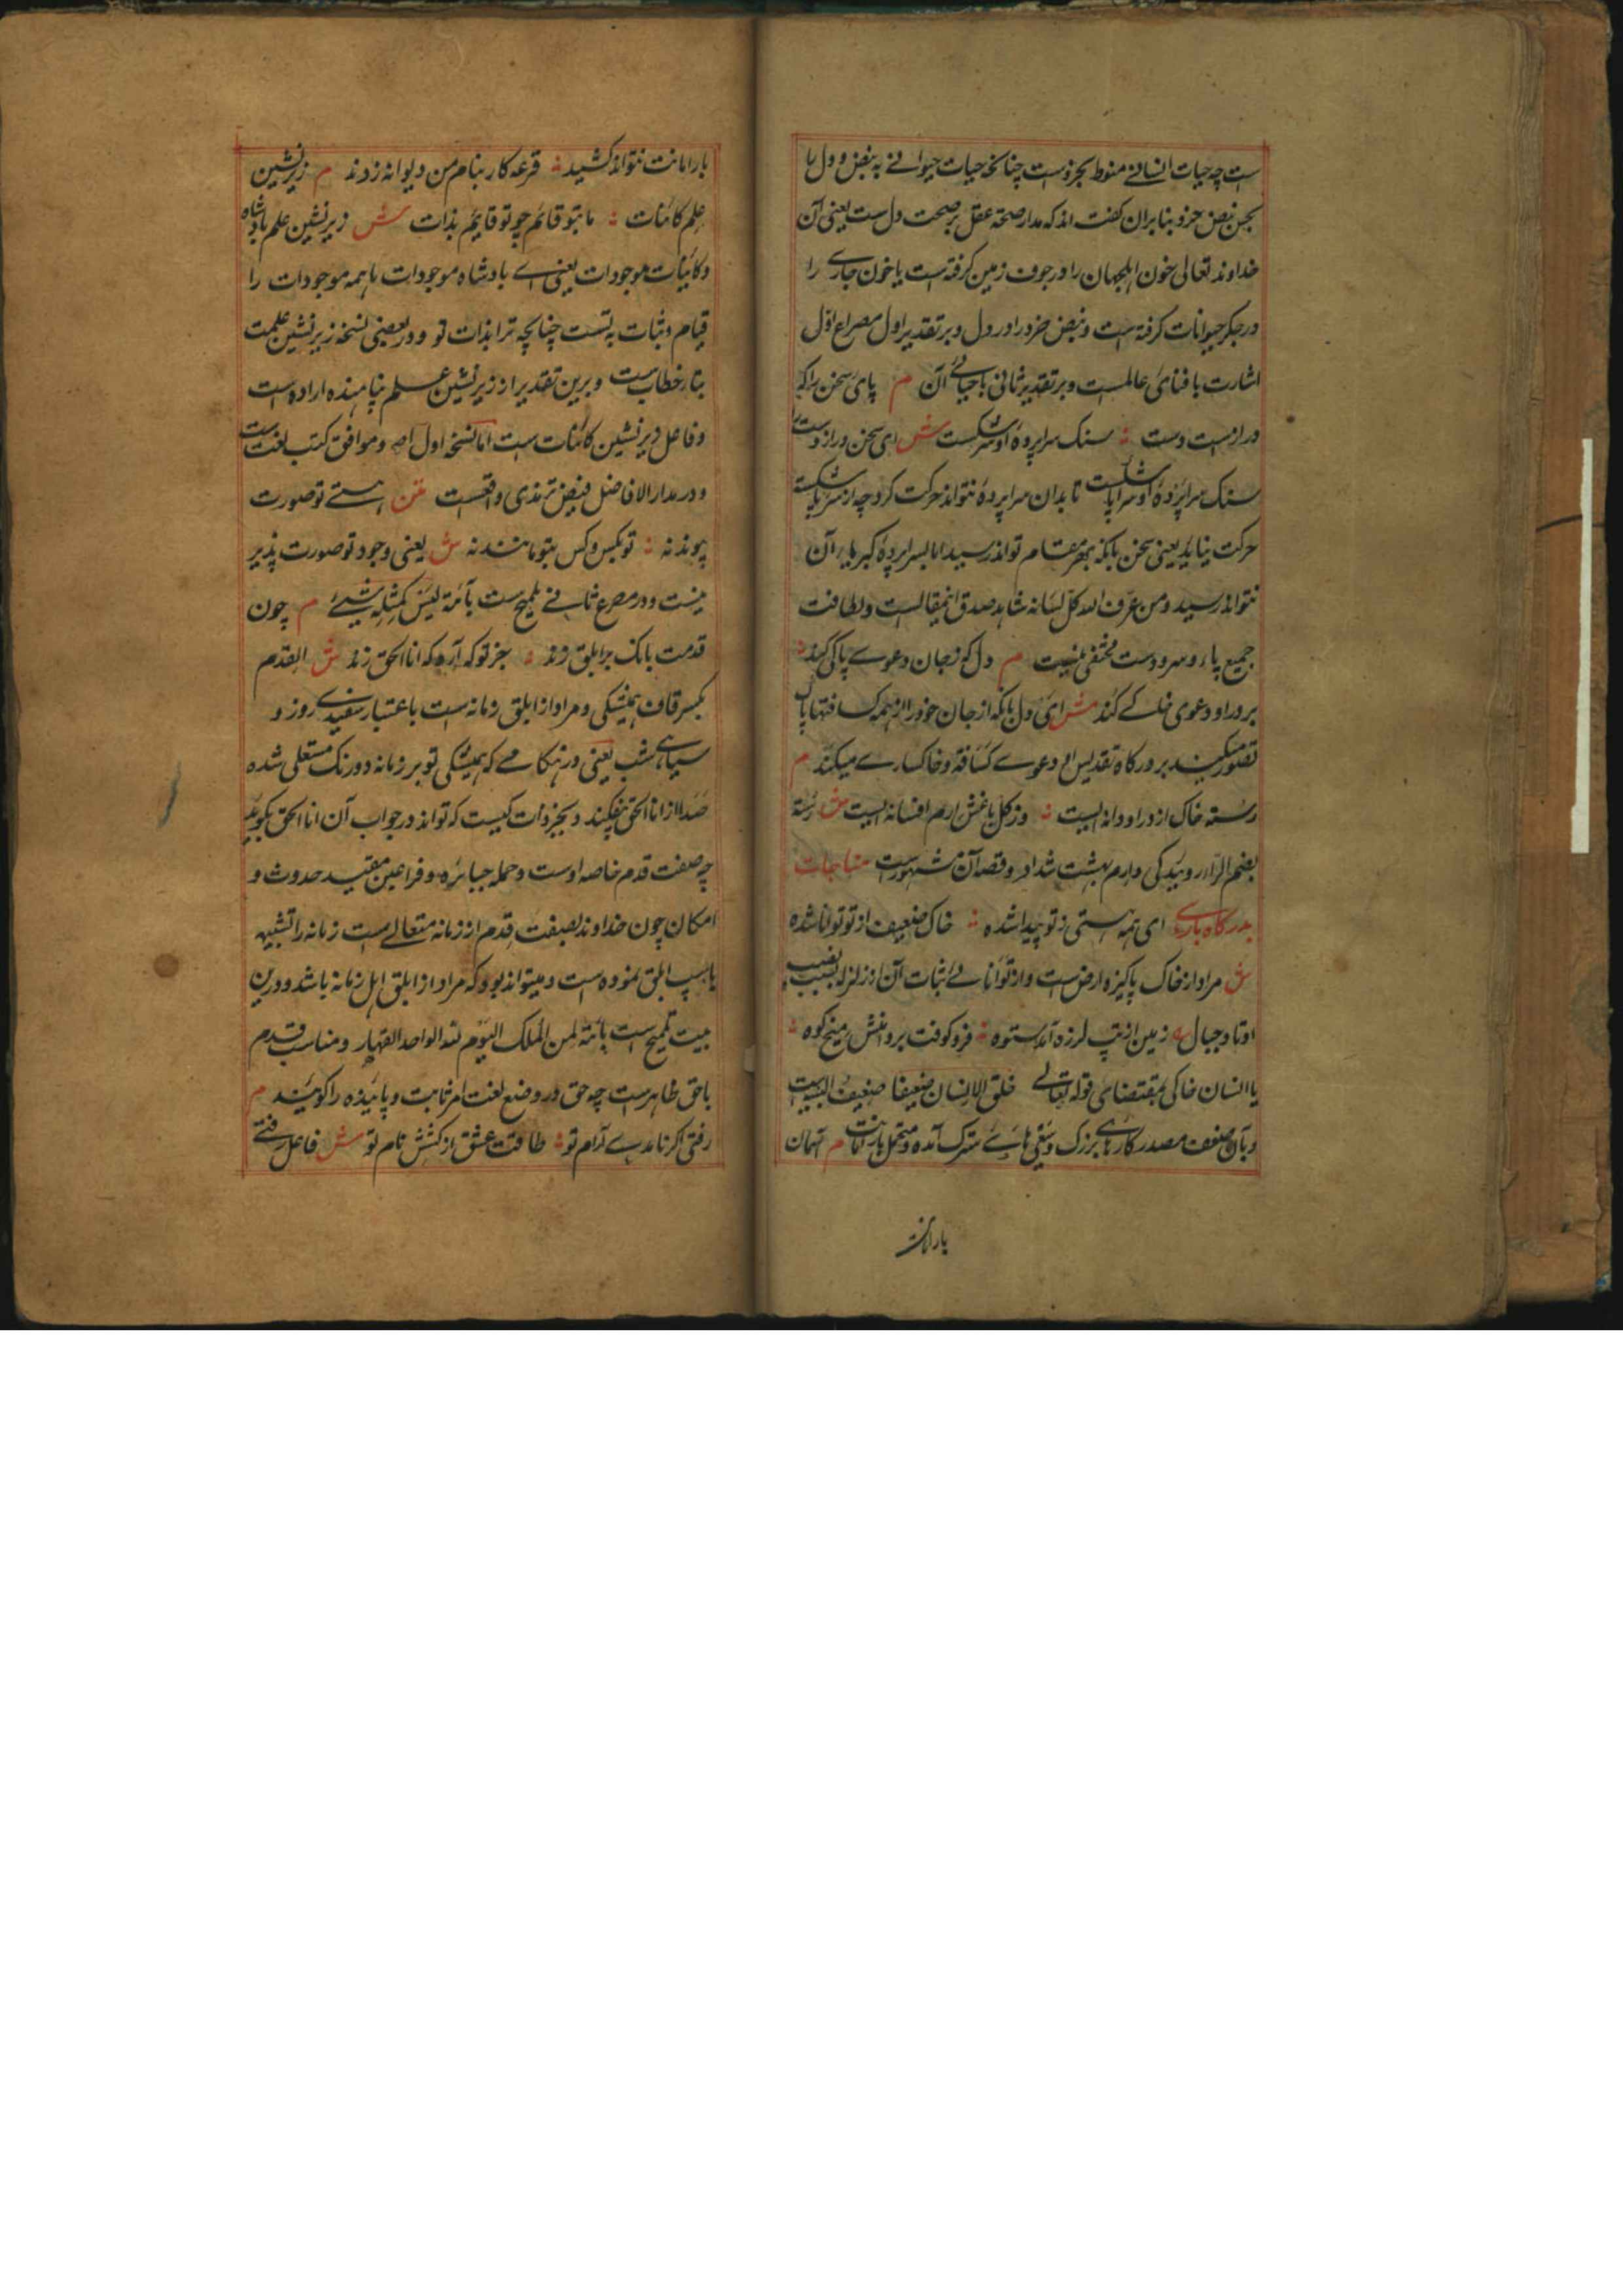 ست چه حیات انسانے منوط بخرد است چنانکه حیات حیوانے به نبض و دل را
نبض خرد بنا بران گفت اند که مدار صحة عقل بر صحت دل ست یعنی آن
خداوند تعالی خون اهل جهان را در جوف زمین گرفته است یا خون جاری را
در جگر حیوانات گرفته ست و نبض خرد را در دل و بر تقدیر اول مصراع اول
اشارت بافنای عالمست و بر تقدیر ثانی باحیائے آن م پای سخن را که
درازست دست ؞ سنک سراپردهٔ او سر شکست ش ای سخن دراز دست را
سنک سراپردهٔ او سر پا شکست تا بدان سراپردهٔ نتواند حرکت کرد چه از سر پا شکسته
حرکت نیاید یعنی سخن بانکه بهر مقام تواند رسید اما بسراپردهٔ کبریاء آن
نتواند رسید و من عرف الله کل لسانه شاهد صدق این مقالست و لطافت
جمیع پا و سر و دست مختفی نیست م دل که ز جان دعوے پاکی کند ؞
بر در او دعوی خاکے کند ش ای دل بانکه از جان خود را از همه کسافتها پاک
تصور میکند بر درگاه تقدیس او دعوے کسافة و خاکسارے میکند م
رسته خاک از در او دانه ایست ؞ وز گل باغش ارم افسانه ایست ش رسته
بضم الراء روئیدکی و ارم بهشت شداد و قصه آن مشهورست مناجات
بدرکاه باری ای همه هستی ز تو پیدا شده ؞ خاک ضعیف از تو توانا شده
ش مراد از خاک پاکیزه ارض ست و از توانائے ثبات آن از زلزله بسبب نصب
اوتاد جبال زمین از تب لرزه آمد ستوه ؞ فرو کوفت بر دامنش میخ کوه ؞
یا انسان خاکی بمقتضای قوله تعالے خلق الانسان ضعیفا ضعیف البنیه ست
و بآن ضعف مصدر کارهای بزرک و سعی هاے سترک آمده و متحمل بار امانت م آسمان
بار امانت
بار امانت نتواند کشید ؞ قرعه کار بنام من دیوانه زدند م زیر نشین
علم کائنات ؞ ما بتو قائم چو تو قایم بذات ش زیر نشین علم بادشاه
و کائنات موجودات یعنی اے بادشاه موجودات باهمه موجودات را
قیام و ثبات به تست چنانچه ترا بذات تو و در بعضی نسخه زیر نشین علمت
بتاء خطاب ست و برین تقدیر از زیر نشین علم پناهنده اراده است
و فاعل زیر نشین کائنات ست اما نسخه اول اصح و موافق کتب لغت ست
و در مدار الافاضل فیض ترمذی واقعست متن هستے تو صورت
پیوند نه ؞ تو بکس و کس بتو مانند نه ش یعنی وجود تو صورت پذیر
نیست و در مصرع ثانے تلمیح ست بآیة لیس کمثله شیئ م چون
قدمت بانک بر ابلق زند ؞ جز تو که آرد که انا الحق زند ش القدم
بکسر قاف همیشکی و مراد از ابلق زمانه ست باعتبار سفیدے روز و
سیاهے شب یعنی در هنکامے که همیشکی تو بر زمانه دو رنک مستعلی شده
صدا از انا الحق بفکند و بجز ذات کیست که تواند در جواب آن انا الحق بکوید
چه صفت قدم خاصه اوست و جمله جبابره و فراعین مقید حدوث و
امکان چون خداوند بصفت قدم از زمانه متعالے ست زمانه را تشبیه
باسپ ابلق نموده ست و میتواند بود که مراد از ابلق اهل زمانه باشد و درین
بیت تلمیح ست بآیة لمن الملک الیوم لله الواحد القهار و مناسب قدم
باحق ظاهرست چه حق در وضع لغت امر ثابت و پاینده را کویند م
رفتی اکر نامدے آرام تو ؞ طاقت عشق از کشش نام تو ش فاعل رفتے